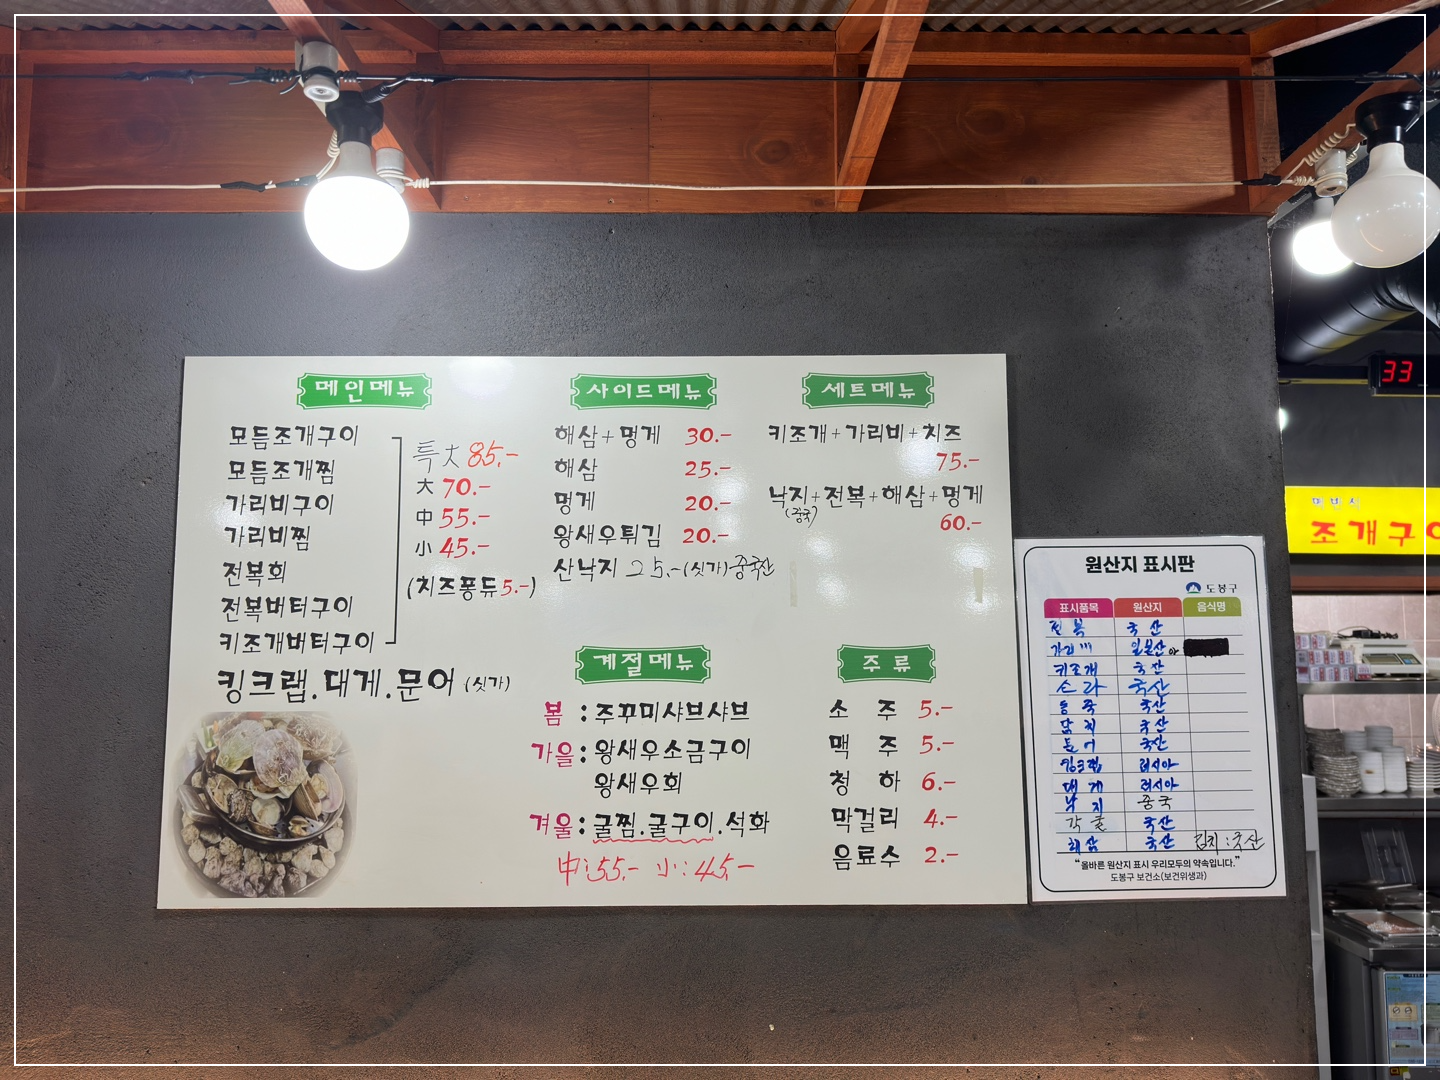 메인메뉴
모듬조개구이
모듬조개찜
가리비구이
가리비찜
전복회
전복버터구이
키조개버터구이
특大 85.-
大 70.-
中 55.-
小 45.-
(치즈퐁듀 5.-)
킹크랩.대게.문어 (싯가)
사이드메뉴
해삼+멍게 30.-
해삼 25.-
멍게 20.-
왕새우튀김 20.-
산낙지 25.-(싯가)중국산
세트메뉴
키조개+가리비+치즈
75.-
낙지+전복+해삼+멍게
(중국)
60.-
계절메뉴
봄 : 주꾸미샤브샤브
가을 : 왕새우소금구이
왕새우회
겨울 : 굴찜.굴구이.석화
中:55.- 小:45.-
주류
소 주 5.-
맥 주 5.-
청 하 6.-
막걸리 4.-
음료수 2.-
원산지 표시판
도봉구
표시품목 원산지 음식명
전복 국산
가리비 일본산
키조개 국산
소라 국산
국산
국산
국산
킹크랩 러시아
대게 러시아
낙지 중국
국산
해삼 국산 김치:국산
"올바른 원산지 표시 우리모두의 약속입니다."
도봉구 보건소(보건위생과)
33
조개구